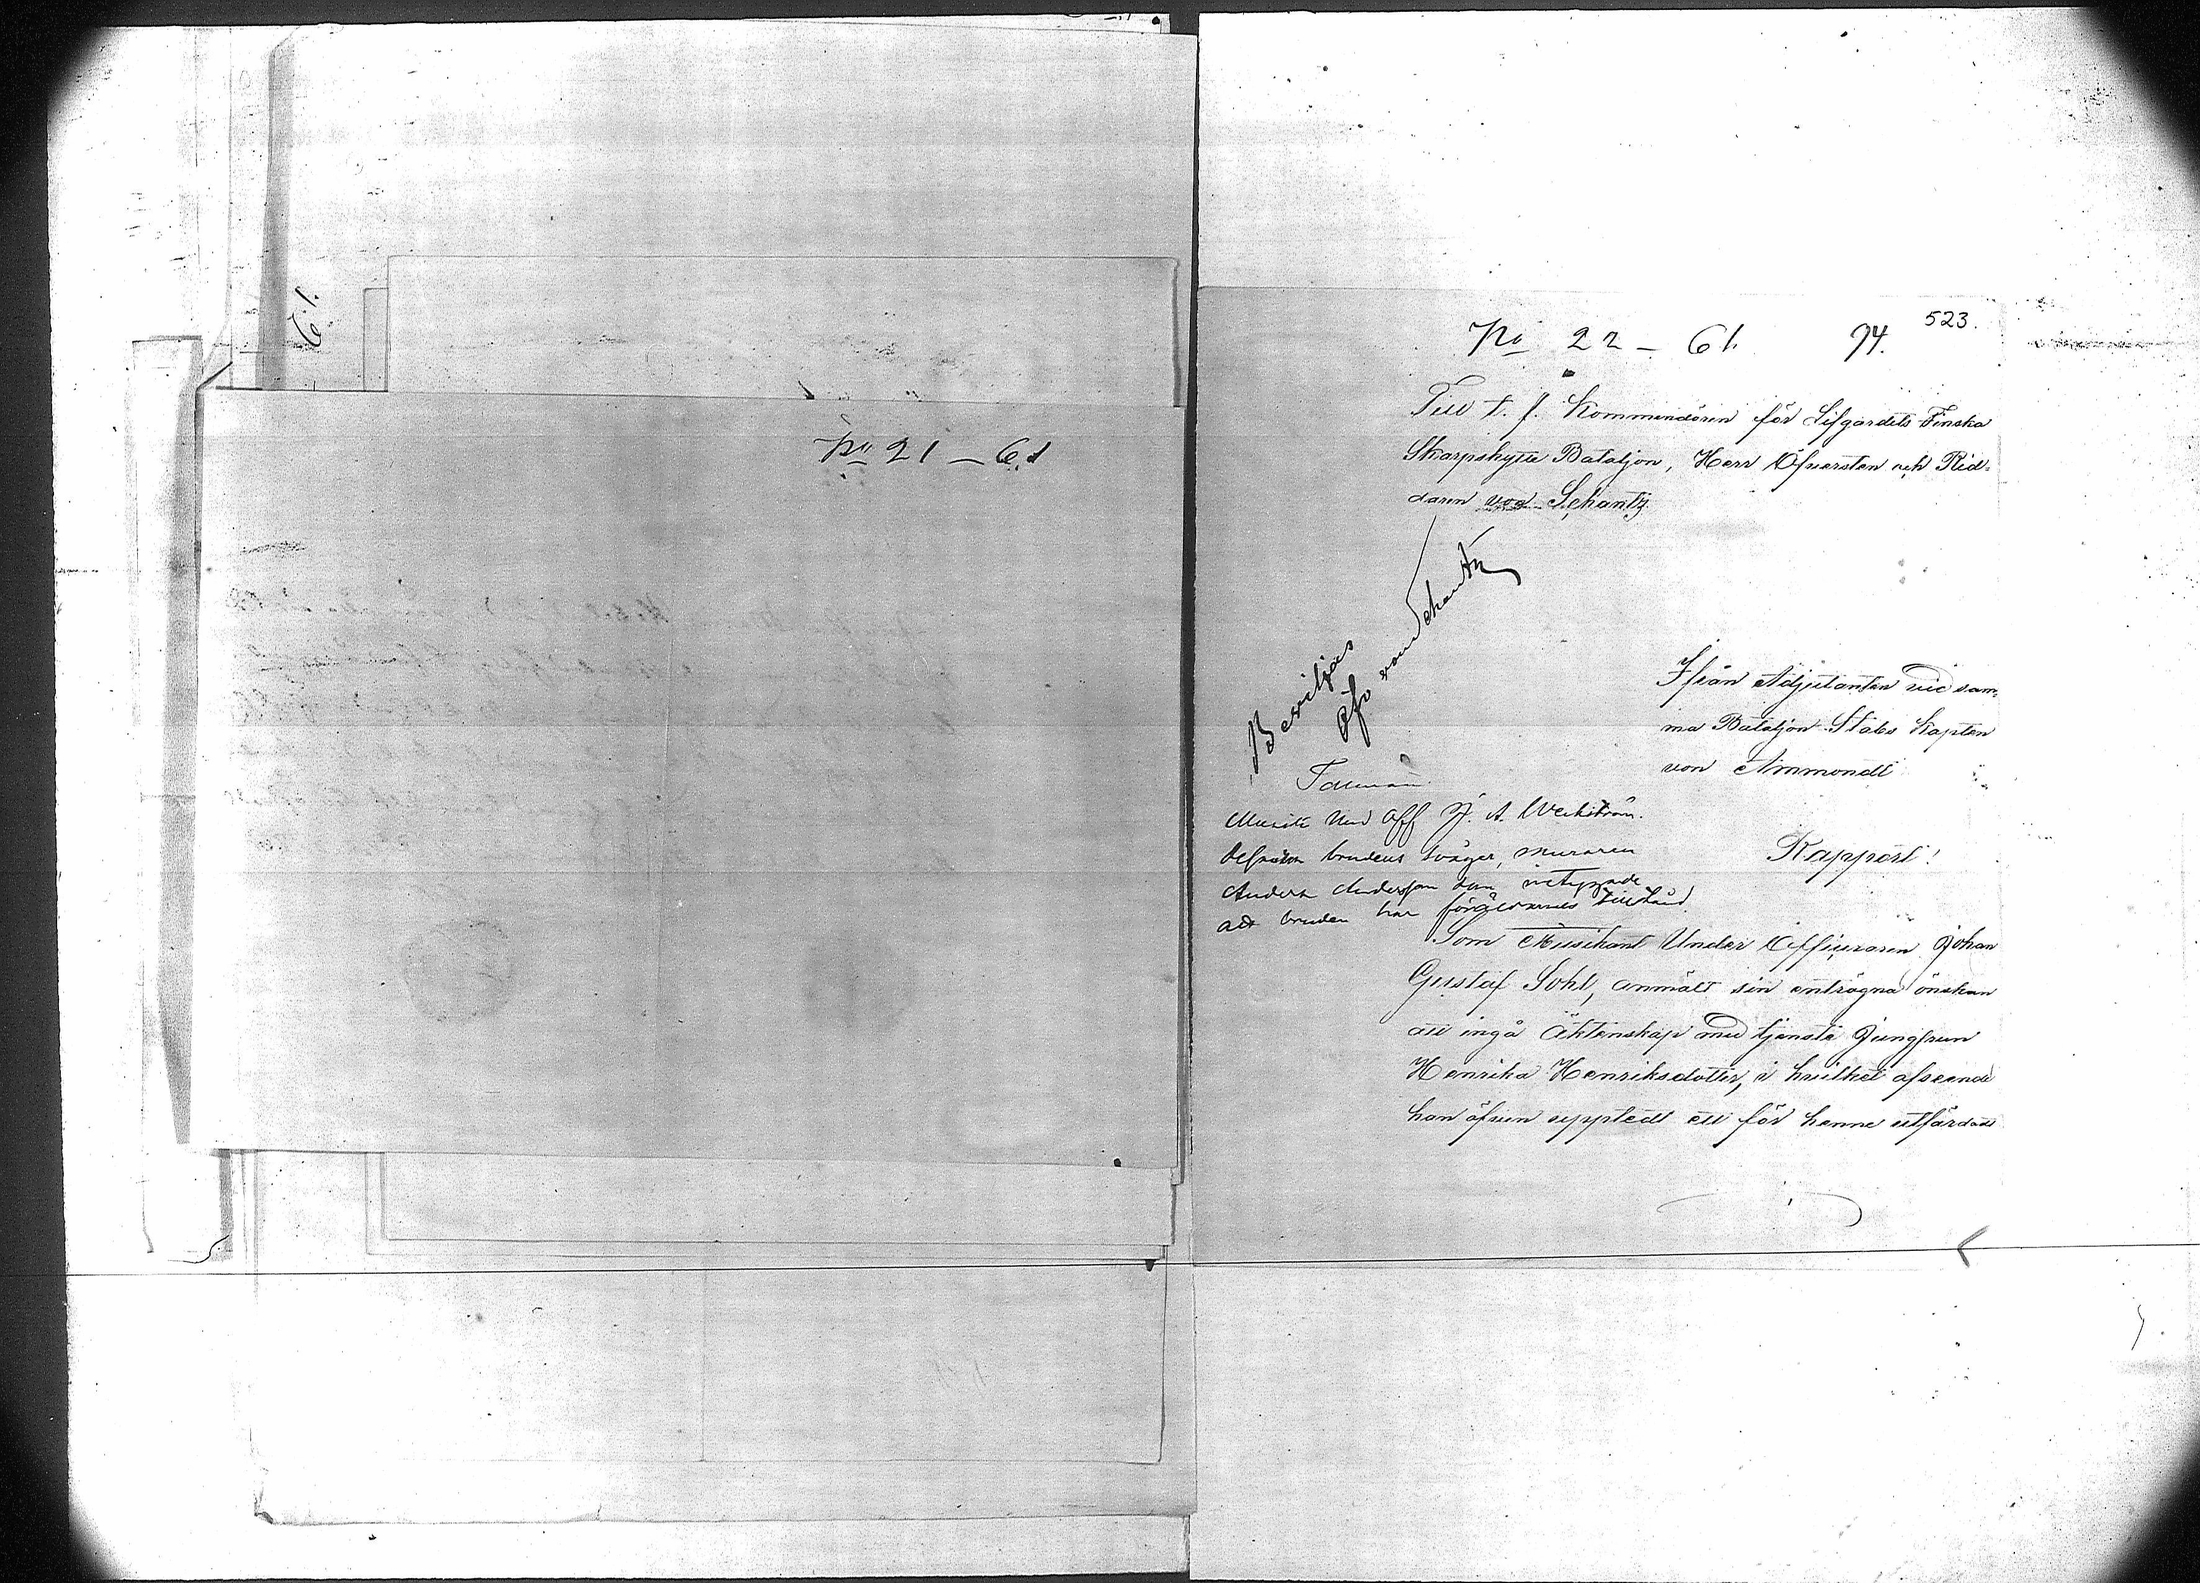 61.
No 21 — 61
523.
No 22 — 61. 94.
Till t. f. Kommendören för Lifgardets Finska
Skarpskytte Bataljon, Herr Öfversten och Rid-
daren von Schantz
Beviljas
Öfv von Schantz
Ifrån Adjutanten vid sam-
ma Bataljon Stabs Kapten
von Ammondt
Rapport!
Talman
Musik Und Off J. A. Weckström.
brudens svåger, muraren
Anders Andersson som
att bruden har tillstånd.
Som Musikant Under Officeraren Johan
Gustaf Sohl, anmält sin enträgna önskan
att ingå Äktenskap med tjenste Jungfrun
Henrika Henriksdotter, i hvilket afseende
han äfven upptedt ett för henne utfärdadt